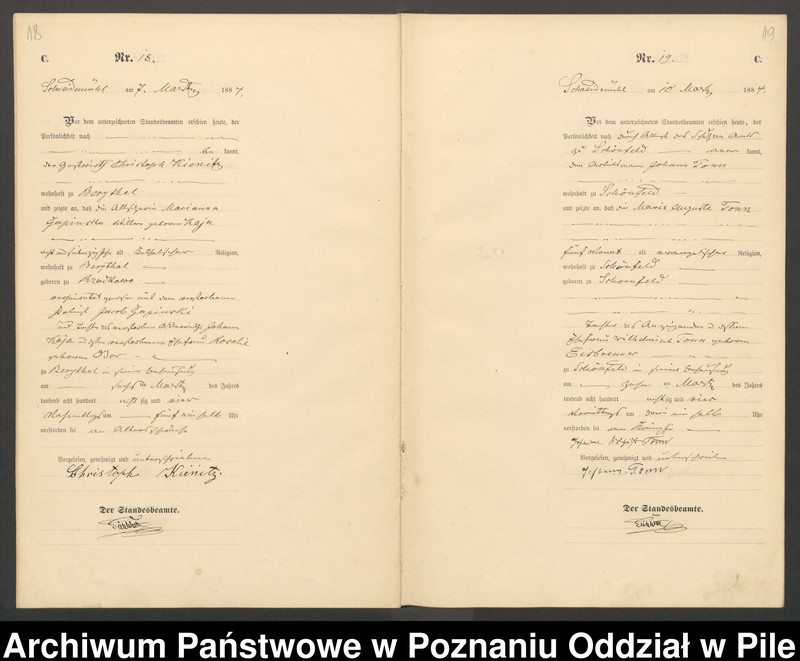 18
C. Nr. 18.
Schneidemühl am 7. Maertz 1884,
Vor dem unterzeichneten Standesbeamten erschien heute, der
Persönlichkeit nach
be kannt,
der Christoph Kienitz
wohnhaft zu Bergthal
und zeigte an, daß die Marianna
geborene Kaja
alt katholischer Religion,
wohnhaft zu Bergthal
geboren zu
verheirathet gewesen mit dem verstorbenen
Jacob
und Tochter des verstorbenen Johann
Kaja und dessen verstorbenen Ehefrau Rosalie
geborenen
zu Bergthal in seiner Behausung
am sechs ten Maertz des Jahres
tausend acht hundert acht zig und vier
Nachmittags um fünf ein halb Uhr
verstorben sei an Altersschwäche
Vorgelesen, genehmigt und unterschrieben
Christoph Kienitz.
Der Standesbeamte.
19
Nr. 19. C.
Schneidemühl am 10 Maertz 1884.
Vor dem unterzeichneten Standesbeamten erschien heute, der
Persönlichkeit nach durch Attest des Schulzen Amts
zu Schönfeld kannt,
der Johann Tonn
wohnhaft zu Schönfeld
und zeigte an, daß die Marie Auguste Tonn
fünf Monat alt evangelischer Religion,
wohnhaft zu Schönfeld
geboren zu Schönfeld
Tochter des Anzeigenden und dessen
Ehefrau Wilhelmine Tonn geborenen
zu Schönfeld in seiner Behausung
am ten Maertz des Jahres
tausend acht hundert acht zig und vier
Vormittags um drei ein halb Uhr
verstorben sei an Krämpfe
Vorgelesen, genehmigt und unterschrieben
Johann Tonn
Der Standesbeamte.
Archiwum Państwowe w Poznaniu Oddział w Pile